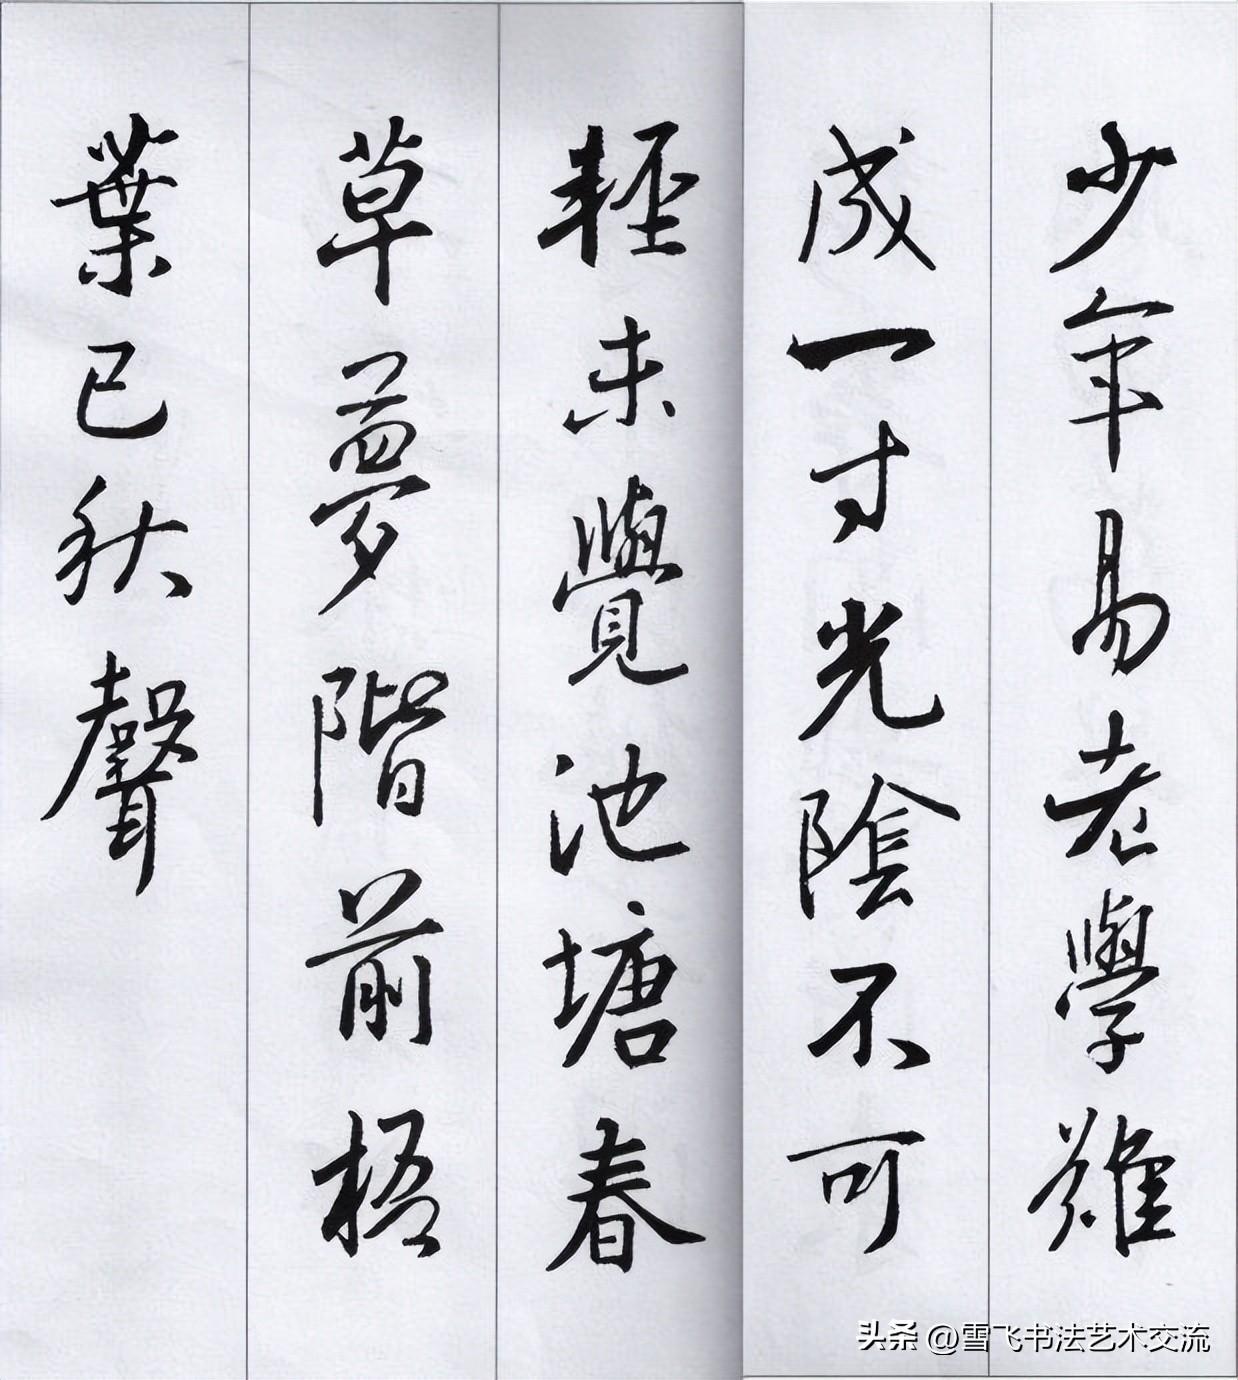 少年易老學難
成一寸光陰不可
輕未覺池塘春
草夢階前梧
葉已秋聲
头条 @雪飞书法艺术交流